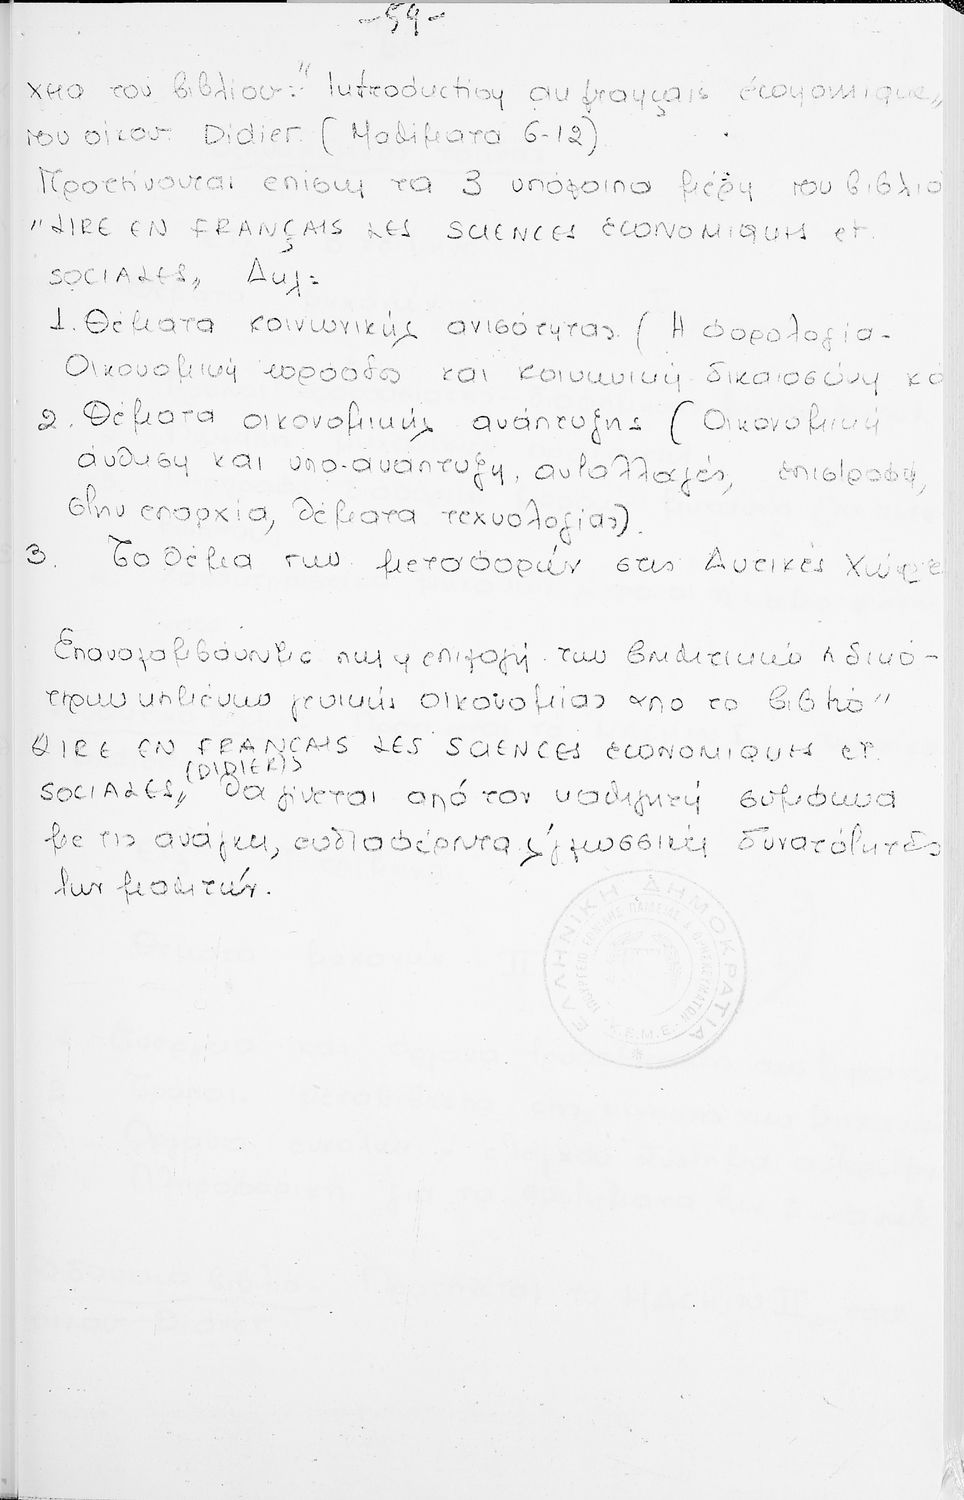 -59-
του βιβλίου: "Introduction au français économique„
του οίκου Didier (Μαθήματα 6-12)
Προτείνονται επίσης τα 3 υπόλοιπα μέρη του βιβλίο
"LIRE EN FRANÇAIS LES SCIENCES ECONOMIQUES et
SOCIALES„ Δηλ:
1. Θέματα κοινωνικής ανισότητας (Η φορολογία-
Οικονομική πρόοδο και κοινωνική δικαιοσύνη κα
2. Θέματα οικονομικής ανάπτυξης (Οικονομική
άνθιση και υπο-ανάπτυξη, ανταλλαγές, επιστροφή,
στην επαρχία, θέματα τεχνολογίας).
3. Το θέμα των μεταφορών στις Δυτικές Χώρε
Επαναλαμβάνουμε πως η επιλογή των ειδικό-
τερων κειμένων γενικής οικονομίας από το βιβλίο "
LIRE EN FRANÇAIS LES SCIENCES ECONOMIQUES et
(DIDIER)
SOCIALES„ θα γίνεται από τον καθηγητή σύμφωνα
με τις ανάγκες, ενδιαφέροντα, γλωσσικές δυνατότητες
των μαθητών.
ΕΛΛΗΝΙΚΗ ΔΗΜΟΚΡΑΤΙΑ
ΥΠΟΥΡΓΕΙΟ ΕΘΝΙΚΗΣ ΠΑΙΔΕΙΑΣ & ΘΡΗΣΚΕΥΜΑΤΩΝ
Κ.Ε.Μ.Ε.